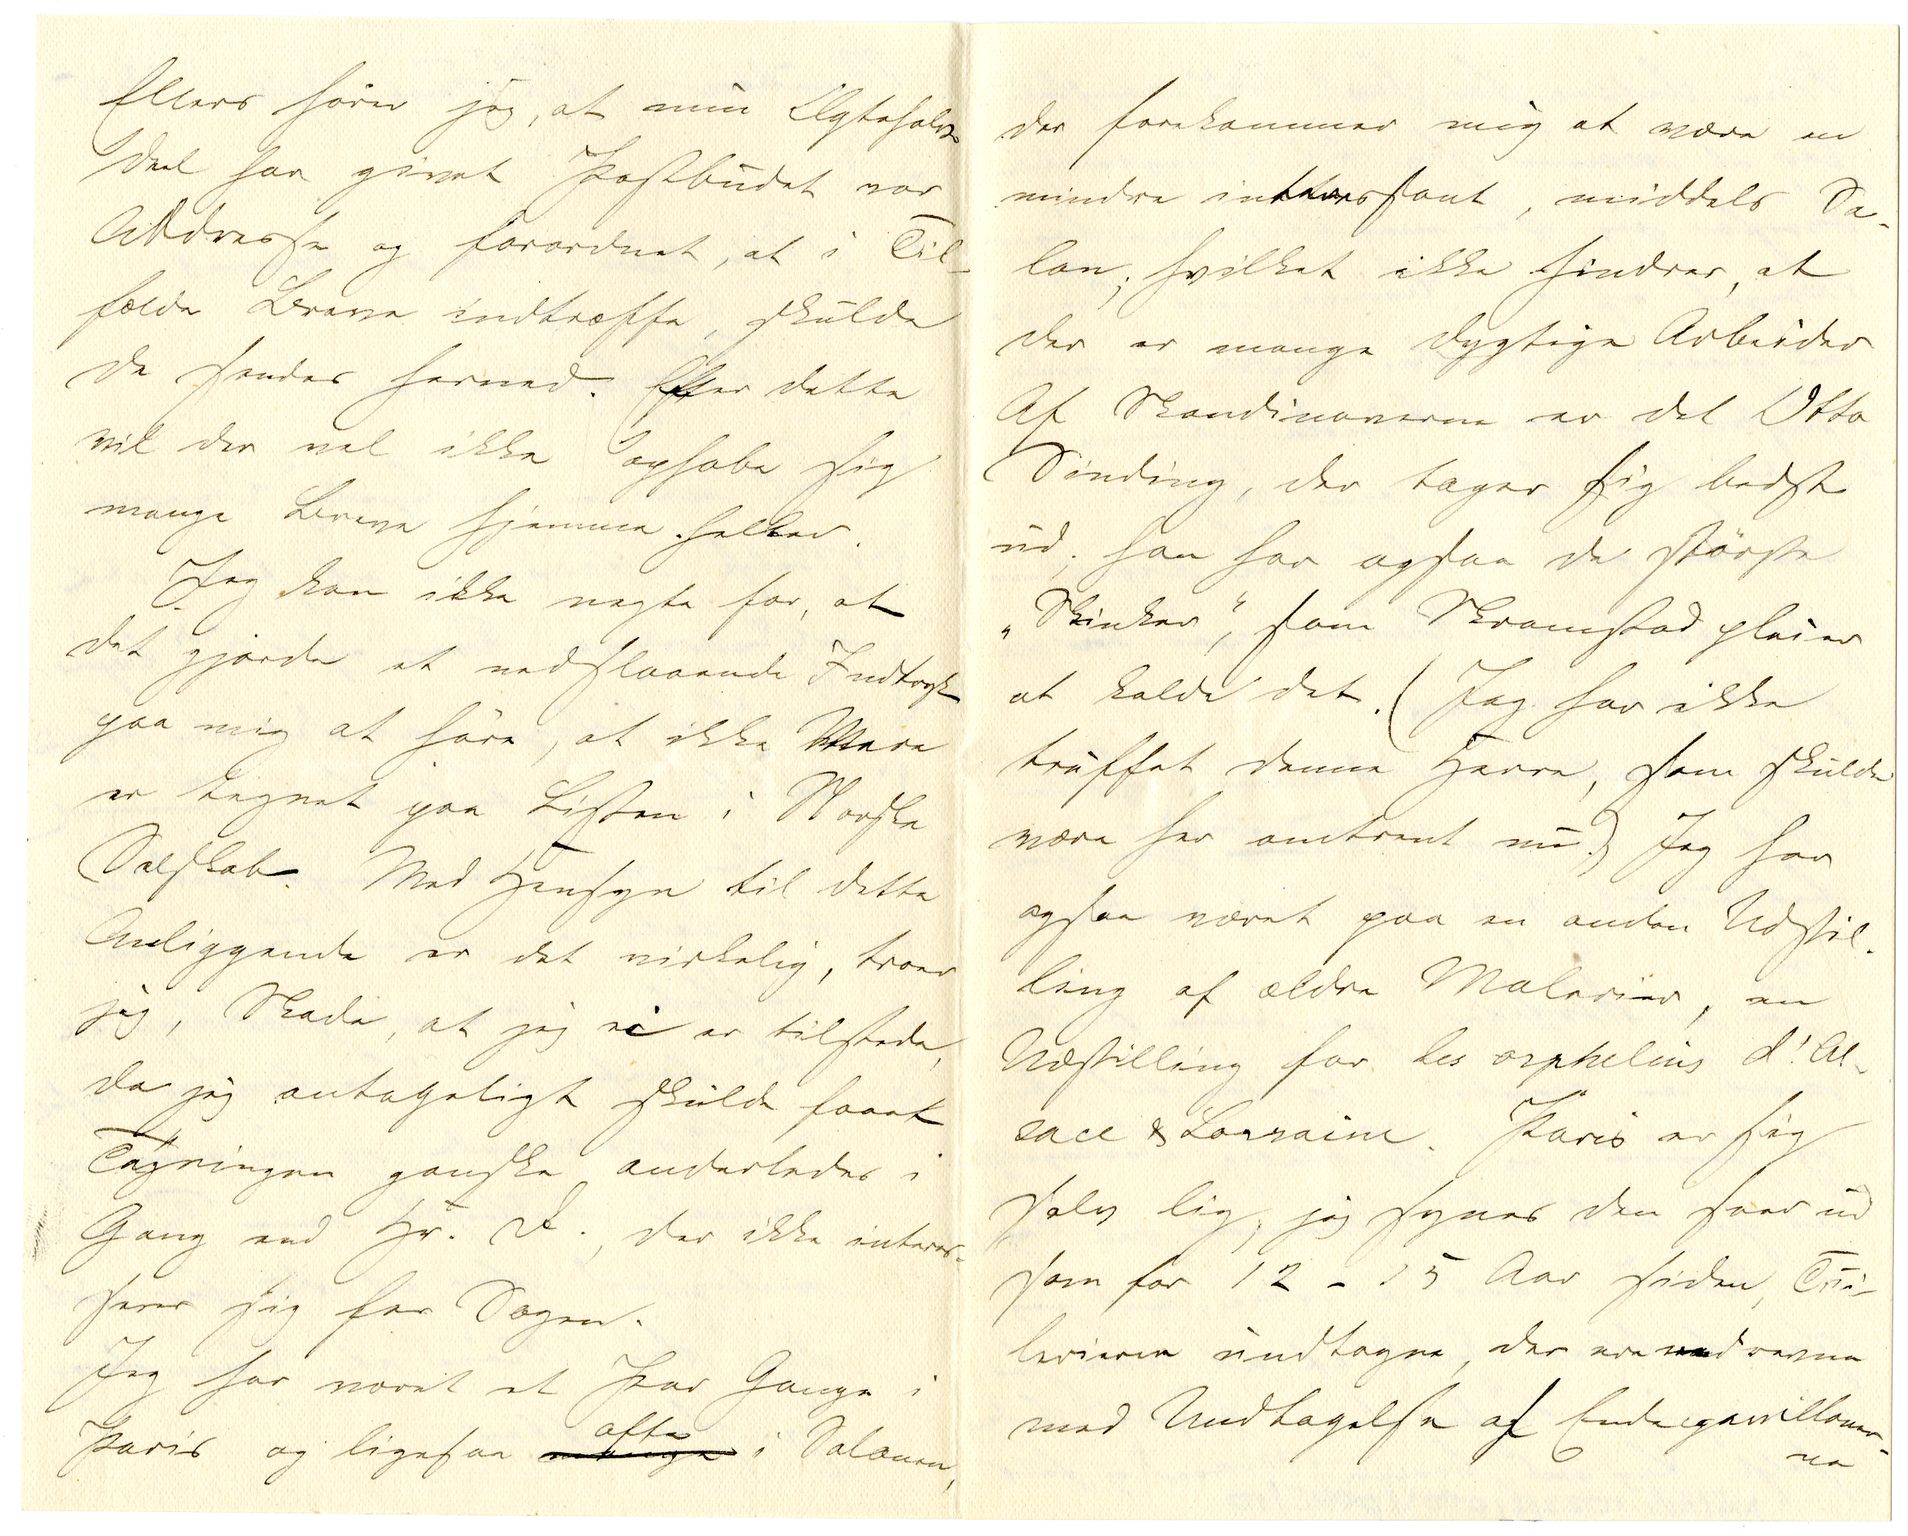 Ellers hører jeg, at min Ægtehalv-
deel har givet Postbudet vor
Addresse og forordnet, at i Til-
fælde Breve indtræffe, skulde
de sendes herned. Efter dette
vil der vel ikke ophobe sig
mange Breve hjemme heller.
Jeg kan ikke negte for, at
det gjorde et nedslaaende Indtryk
paa mig at høre, at ikke Mere
er tegnet paa Listen i Norske
Selskab. Med Hensyn til dette
Anliggende er det virkelig, troer
jeg, Skade, at jeg ei er tilstede,
da jeg antageligt skulde faaet
Tegningen ganske anderledes i
Gang end Hr. D., der ikke interes-
serer sig for Sagen.
Jeg har været et Par Gange i
Paris og ligesaa ofte i Salonen,
der forekommer mig at være en
mindre interessant, middels Sa-
lon; hvilket ikke hindrer, at
der er mange dygtige Arbeider
Af Skandinaverne er det Otto
Sinding, der tager sig bedst
ud; han har ogsaa de største
„Skinker“, som Skramstad pleier
at kalde det. (Jeg har ikke
truffet denne Herre, som skulde
være her omtrent nu.) Jeg har
ogsaa været paa en anden Udstil-
ling af ældre Malerier, en
Udstilling for les orphelins d'Al-
sace & Lorraine. Paris er sig
selv lig, jeg synes den seer ud
som for 12 - 15 Aar siden, Tui-
lerierne undtagne, der ere nedrevne
med Undtagelse af Endepavilloner-
ne